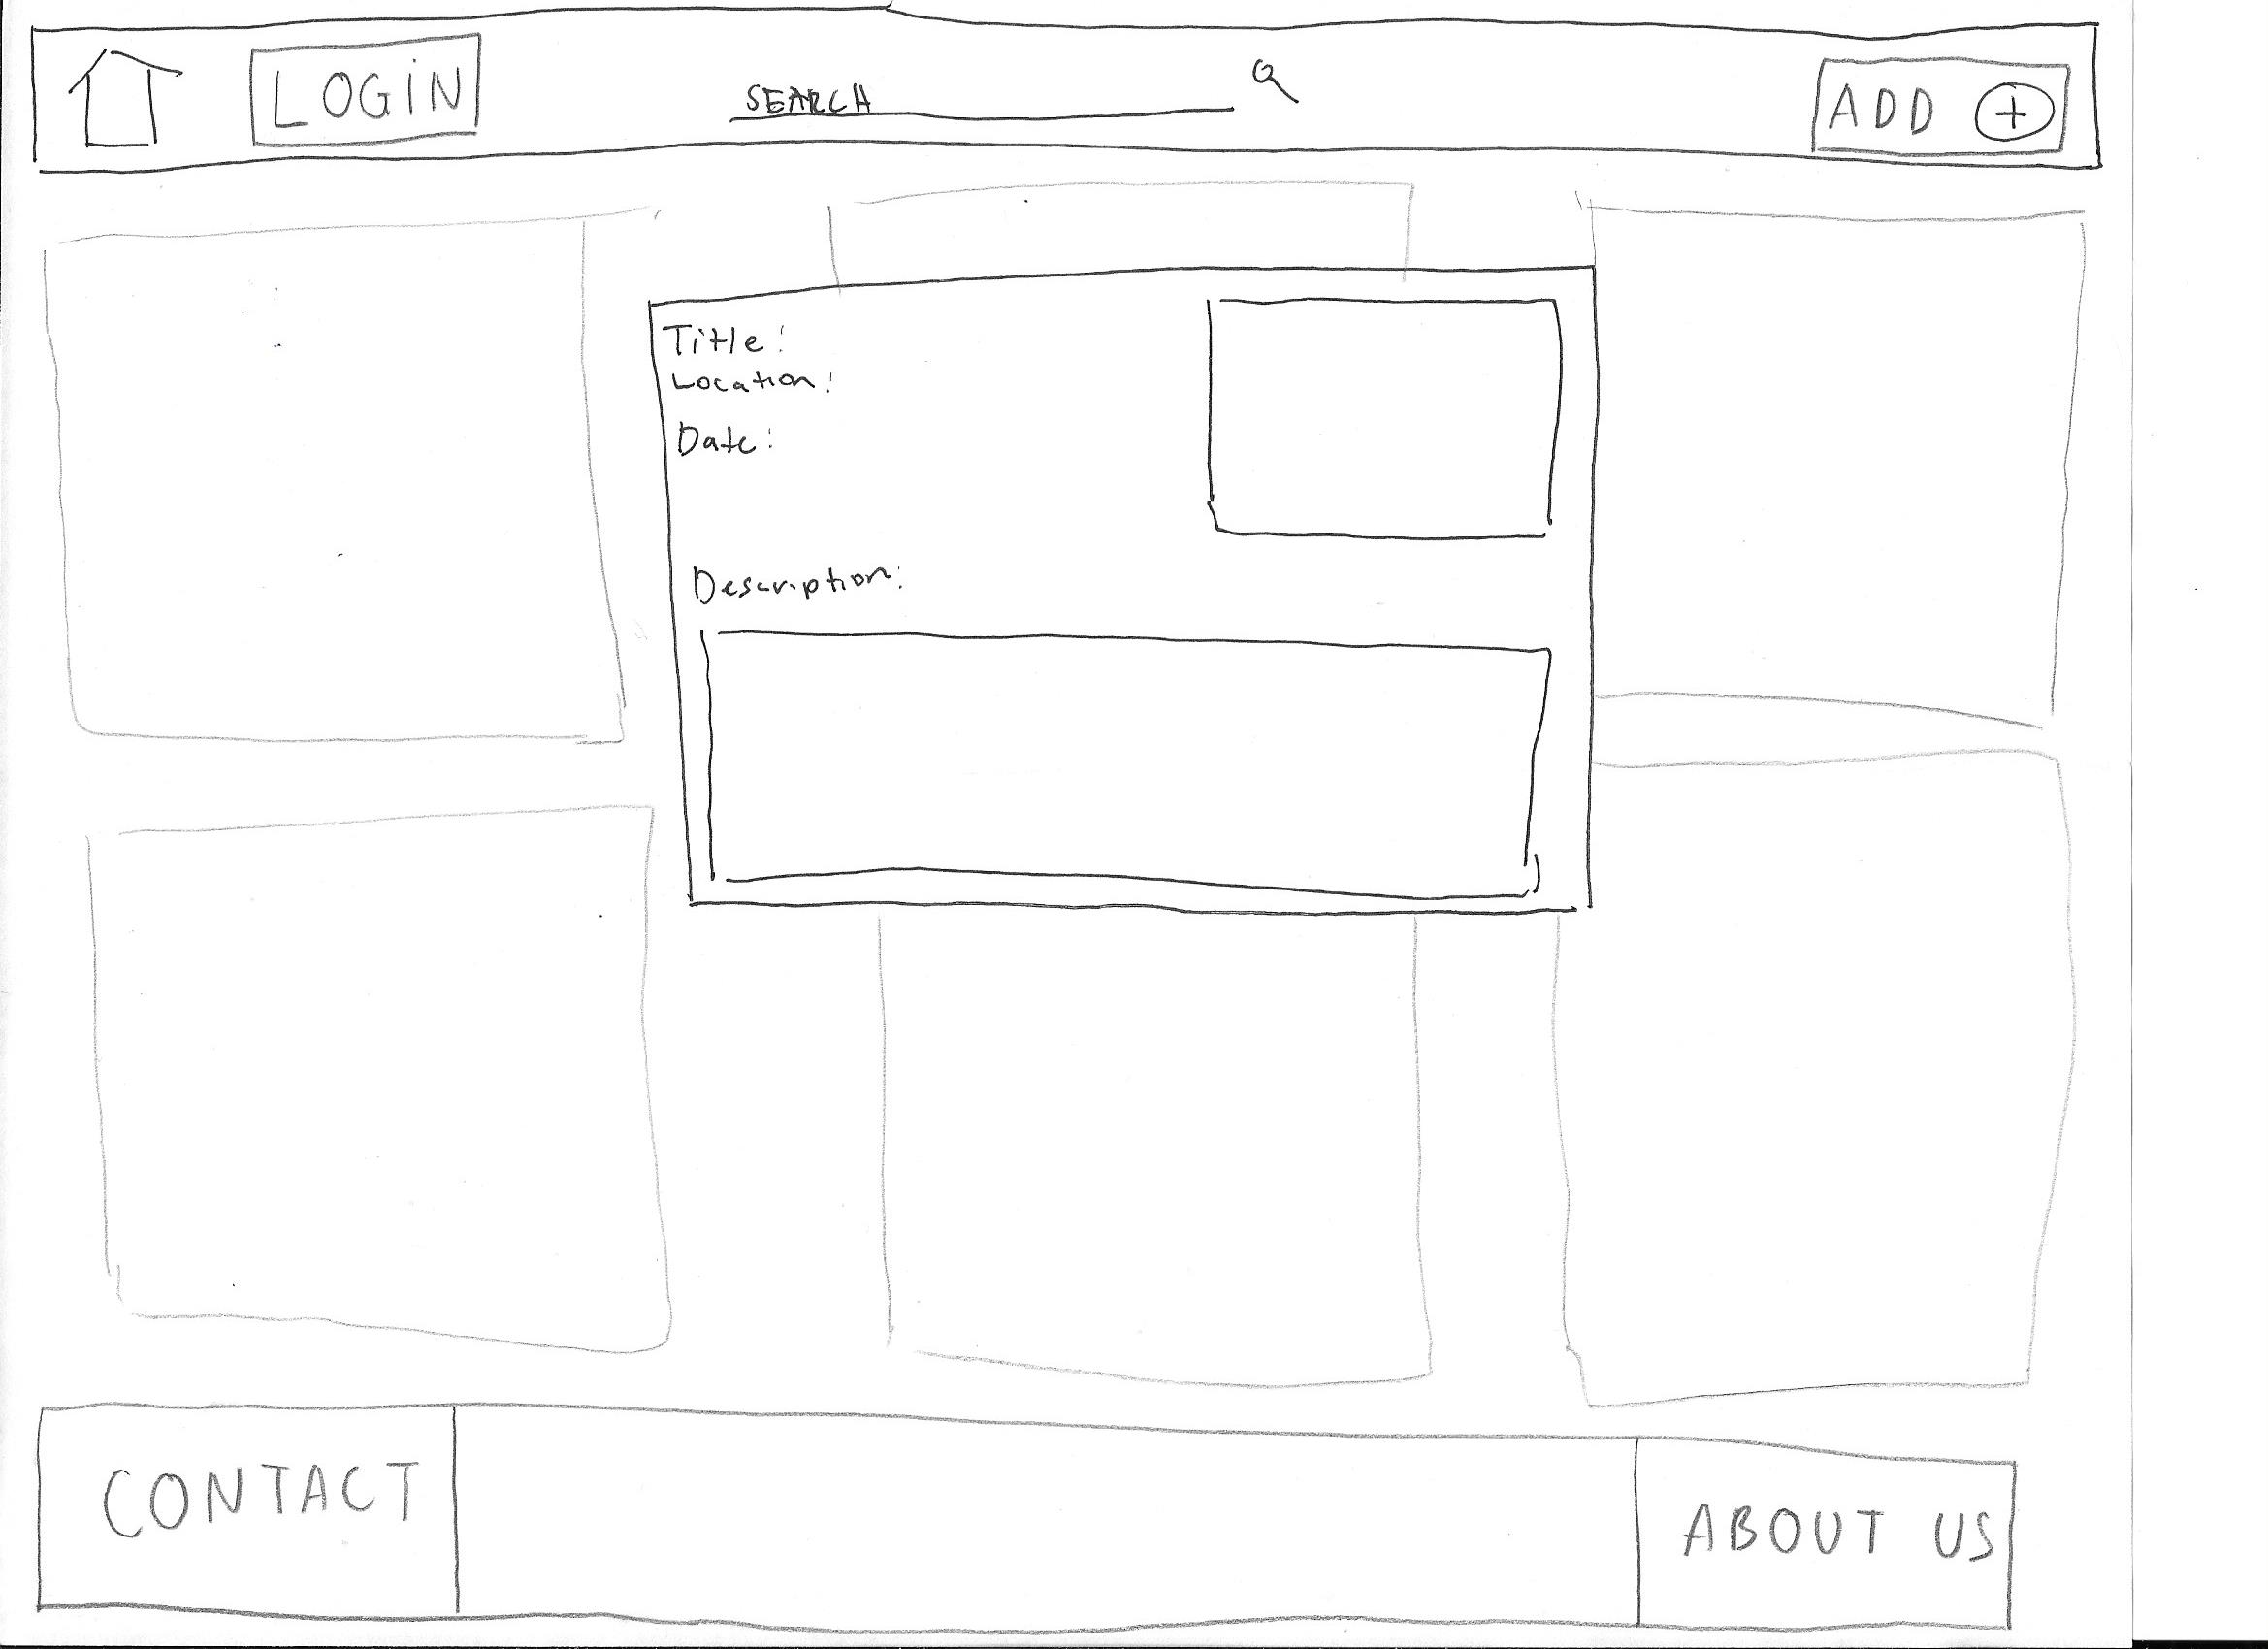 LOGIN
SEARCH
ADD +
Title:
Location:
Date:
Description:
CONTACT
ABOUT US